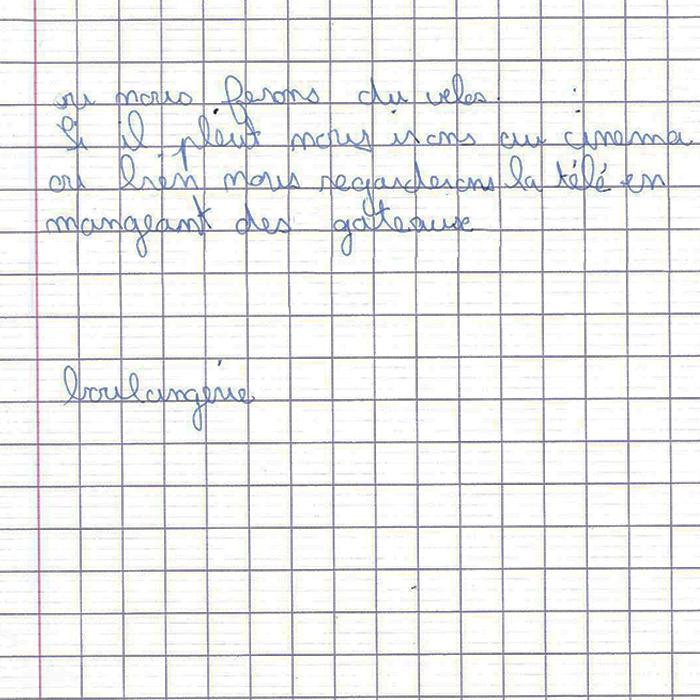 ou nous ferons du velos.
Si il pleut nous irons au cinema
ou bien nous regarderons la télé en
mangeant des gâteaux
boulangerie